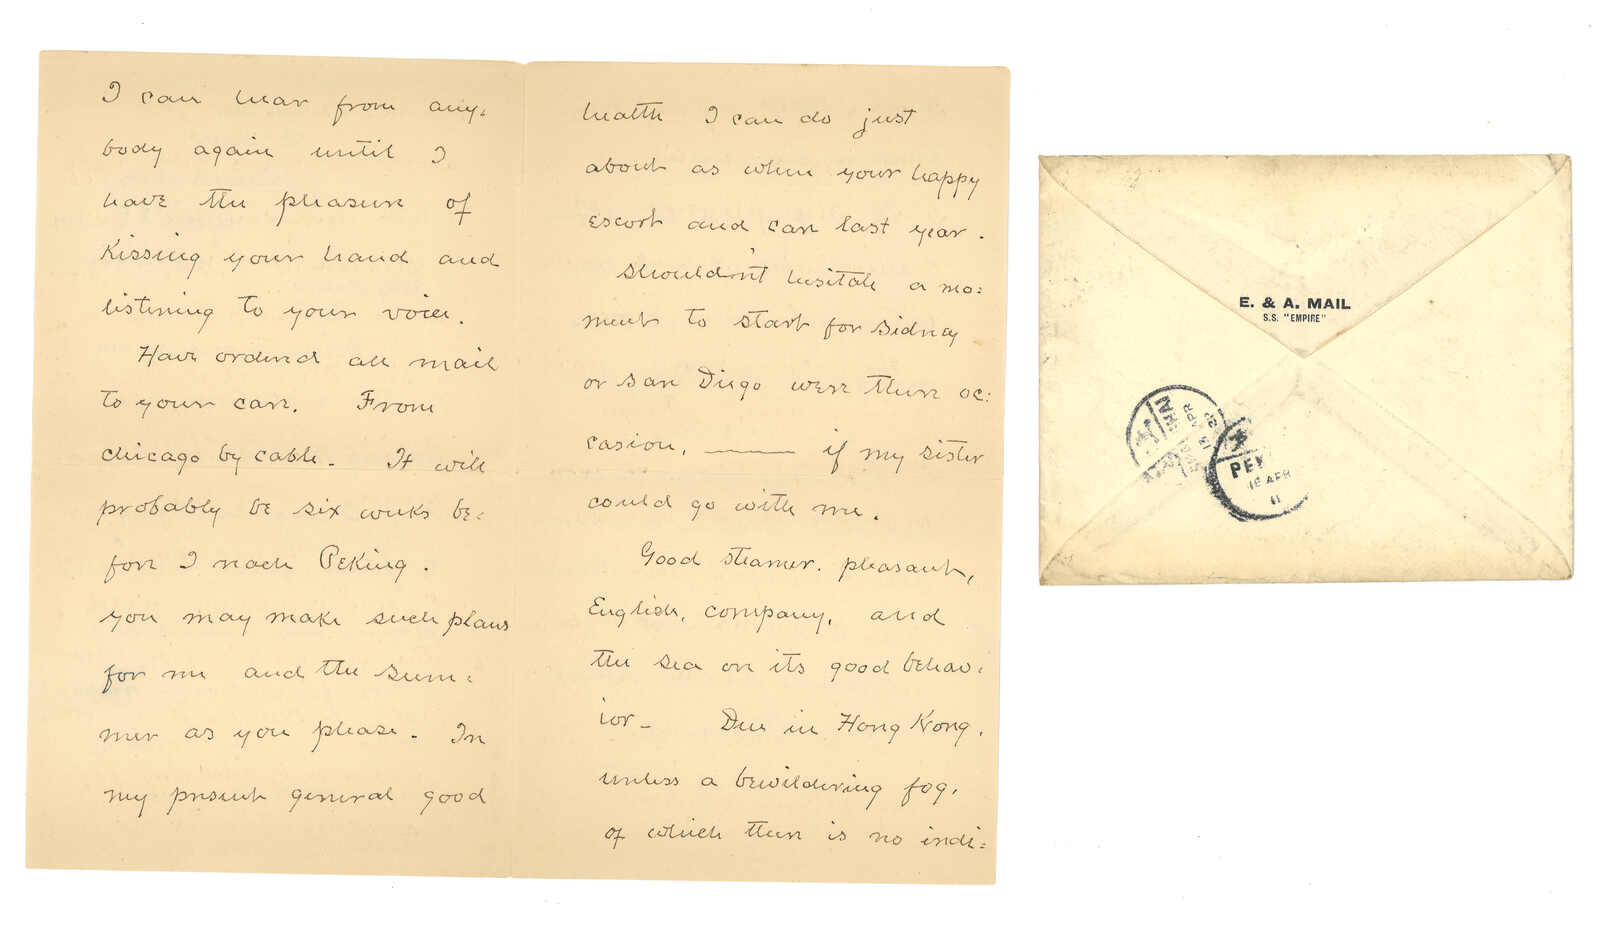 I can hear from any=
body again until I
have the pleasure of
Kissing your hand and
listening to your voice.
Have ordered all mail
to your care. From
Chicago by cable. It will
probably be six weeks be=
fore I reach Peking.
You may make such plans
for me and the sum=
mer as you please. In
my present general good
health I can do just
about as when your happy
escort and care last year.
Shouldn't hesitate a mo=
ment to start for Sidney
or San Diego were there oc=
casion, —— if my sister
could go with me.
Good steamer. pleasant,
English, company, and
the sea on its good behav=
ior— Due in Hong Kong,
unless a bewildering fog,
of which there is no indi=
E. & A. MAIL
S.S. "EMPIRE"
APR
PEK
16 APR
11